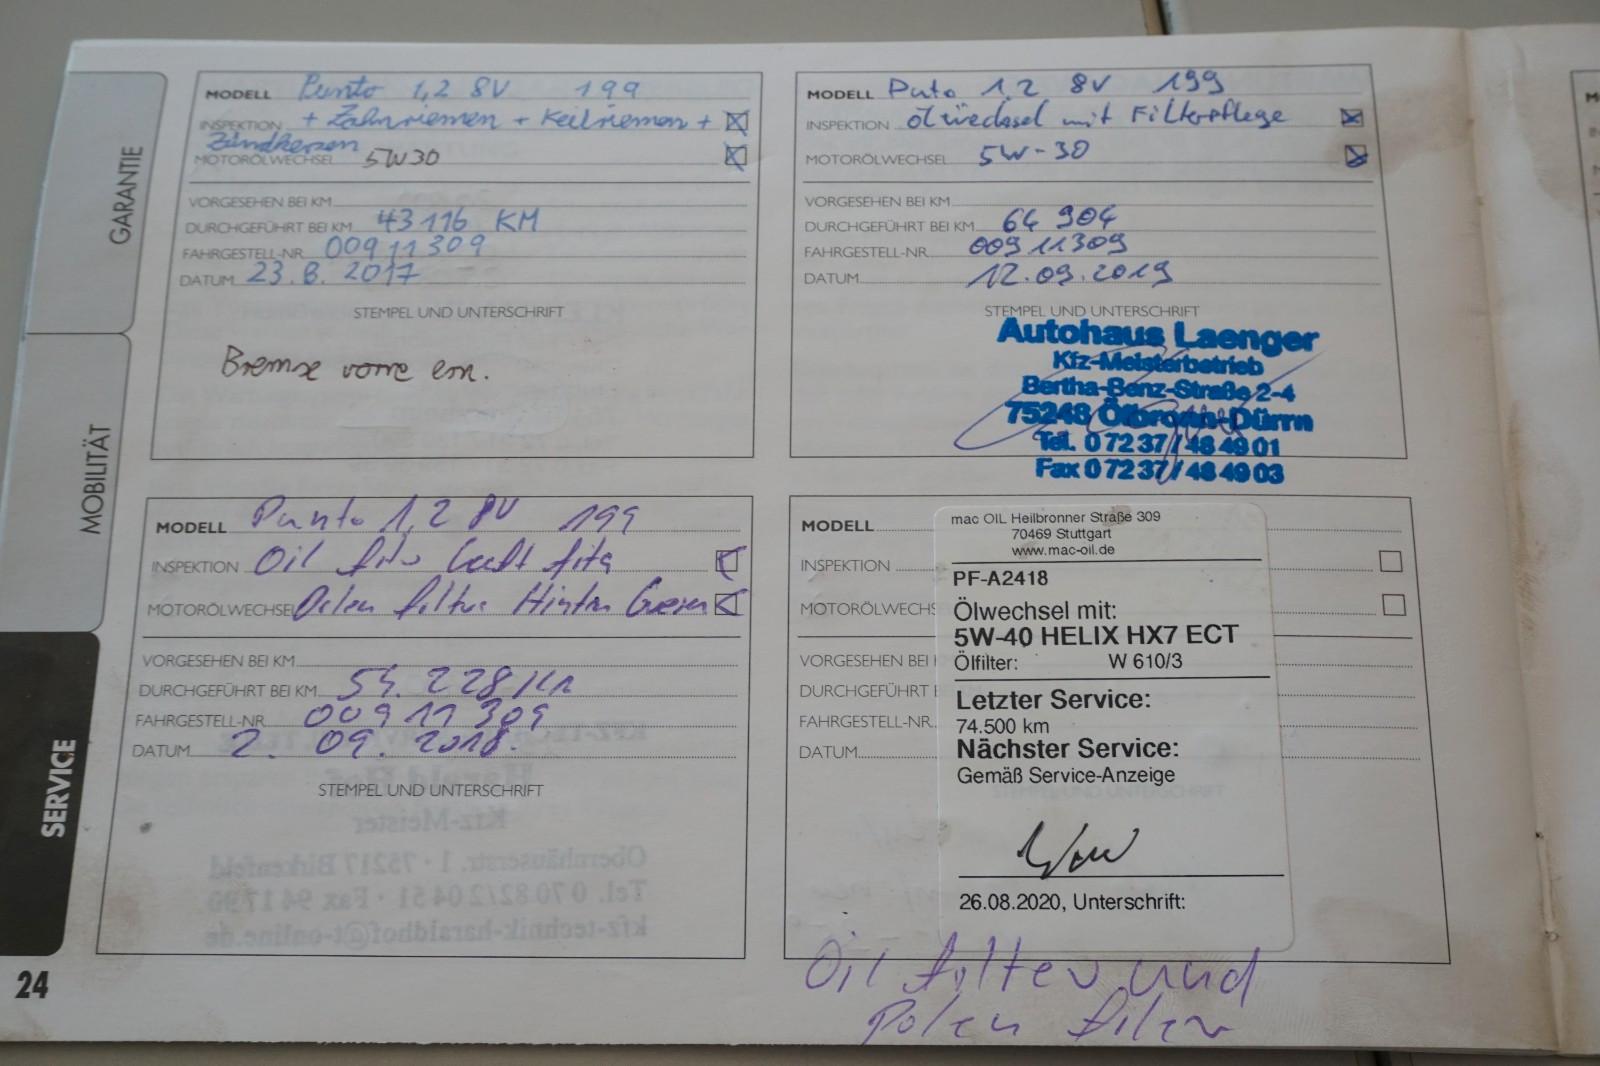 GARANTIE
MOBILITÄT
SERVICE
24
MODELL Punto 1,2 8V 199
INSPEKTION + Zahnriemen + Keilriemen +
Zündkerzen
MOTORÖLWECHSEL 5W30
VORGESEHEN BEI KM
DURCHGEFÜHRT BEI KM 43116 KM
FAHRGESTELL-NR. 00911309
DATUM 23.8.2017
STEMPEL UND UNTERSCHRIFT
Bremse vorne ern.
MODELL Puto 1,2 8V 199
INSPEKTION Ölwechsel mit Filterpflege
MOTORÖLWECHSEL 5W-30
VORGESEHEN BEI KM
DURCHGEFÜHRT BEI KM 64 904
FAHRGESTELL-NR. 00911309
DATUM 12.09.2019
STEMPEL UND UNTERSCHRIFT
Autohaus Laenger
Kfz-Meisterbetrieb
Bertha-Benz-Straße 2-4
75248 Ölbronn-Dürrn
Tel. 0 72 37 / 48 49 01
Fax 0 72 37 / 48 49 03
MODELL Punto 1,2 8V 199
INSPEKTION Oil
MOTORÖLWECHSEL
VORGESEHEN BEI KM
DURCHGEFÜHRT BEI KM 54.228 Km
FAHRGESTELL-NR. 00911309
DATUM 2. 09. 2018.
STEMPEL UND UNTERSCHRIFT
MODELL
INSPEKTION
MOTORÖLWECHS
VORGESEHEN BEI
DURCHGEFÜHRT B
FAHRGESTELL-NR.
DATUM
STEMPEL UND UNTERSCHRIFT
mac OIL Heilbronner Straße 309
70469 Stuttgart
www.mac-oil.de
PF-A2418
Ölwechsel mit:
5W-40 HELIX HX7 ECT
Ölfilter: W 610/3
Letzter Service:
74.500 km
Nächster Service:
Gemäß Service-Anzeige
26.08.2020, Unterschrift:
Oil filter und
Polen